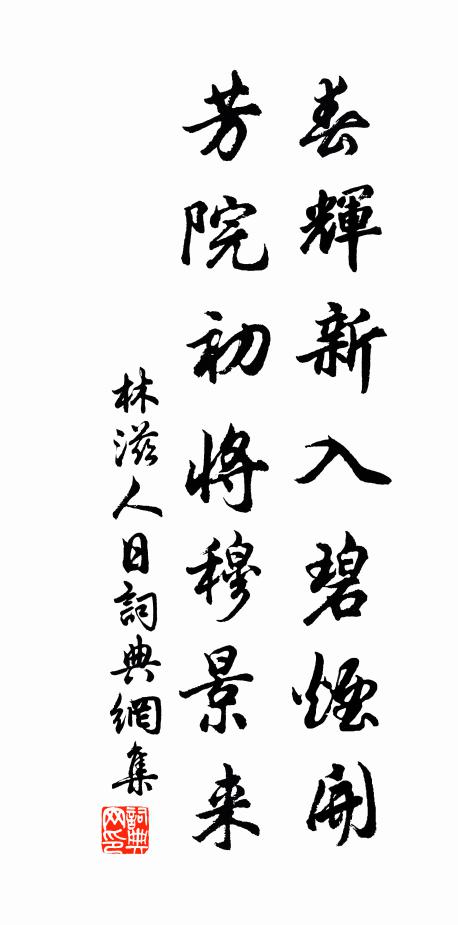 春輝新入碧煙開
芳院初將穆景来
林滋人日詞典網集
詞典網印